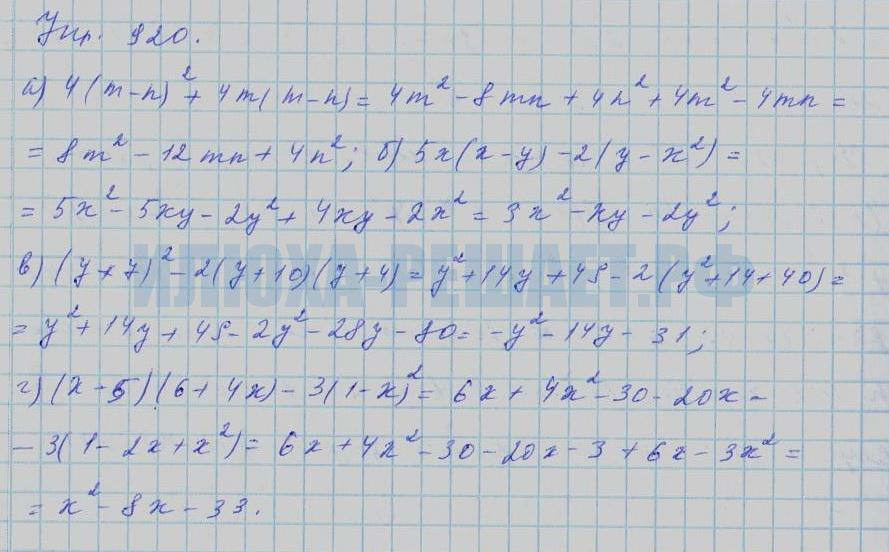 Упр. 920.
а) 4(m-n)²+ 4m(m-n)= 4m²-8mn+4n²+4m²-4mn=
= 8m²-12mn+4n²; б) 5x(x-y)-2(y-x²)=
= 5x²-5xy-2y²+4xy-2x²= 3x²-xy-2y²;
в) (y+7)²-2(y+10)(y+4)= y²+14y+49-2(y²+14+40)=
= y²+14y+49-2y²-28y-80= -y²-14y-31;
г) (x-5)(6+4x)-3(1-x)²= 6x+4x²-30-20x-
-3(1-2x+x²)= 6x+4x²-30-20x-3+6x-3x²=
= x²-8x-33.
ИЛЮХА-РЕШАЕТ.РФ